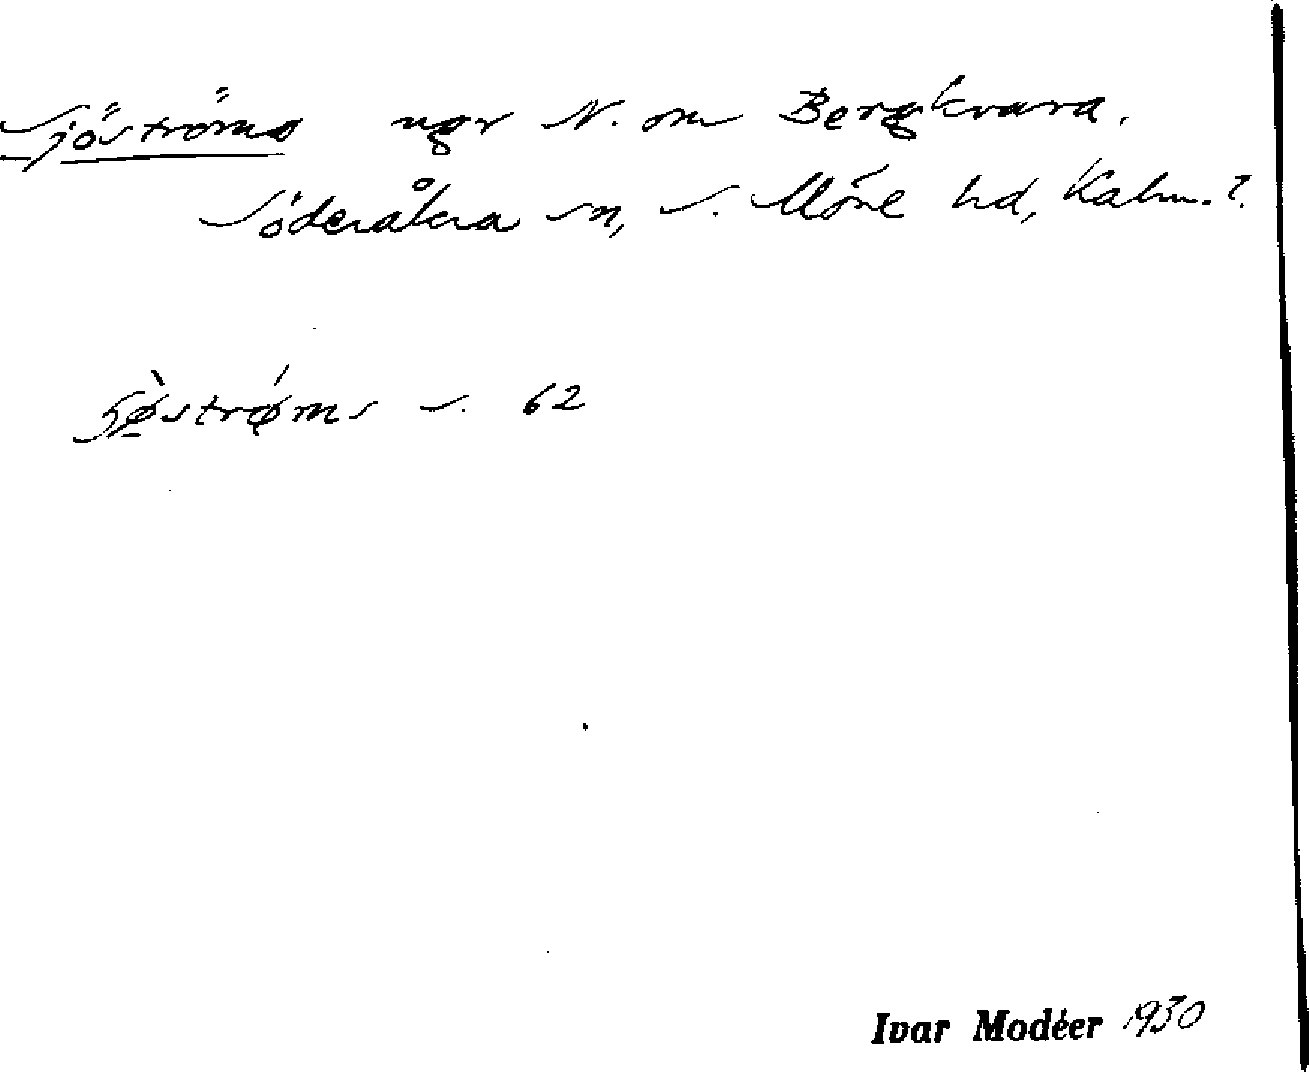 Sjöströms ngr N. om Bergkvara.
Söderåkra sn, S. Möre hd, Kalm. l.
s. 62
Ivar Modéer 1930